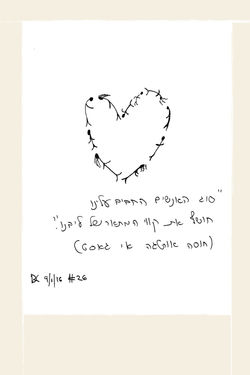 "סוג האנשים החביבים עלינו
חושף את קווי המתאר של ליבנו."
(חוסה אורטגה אי גאסט)
9/1/16 #26